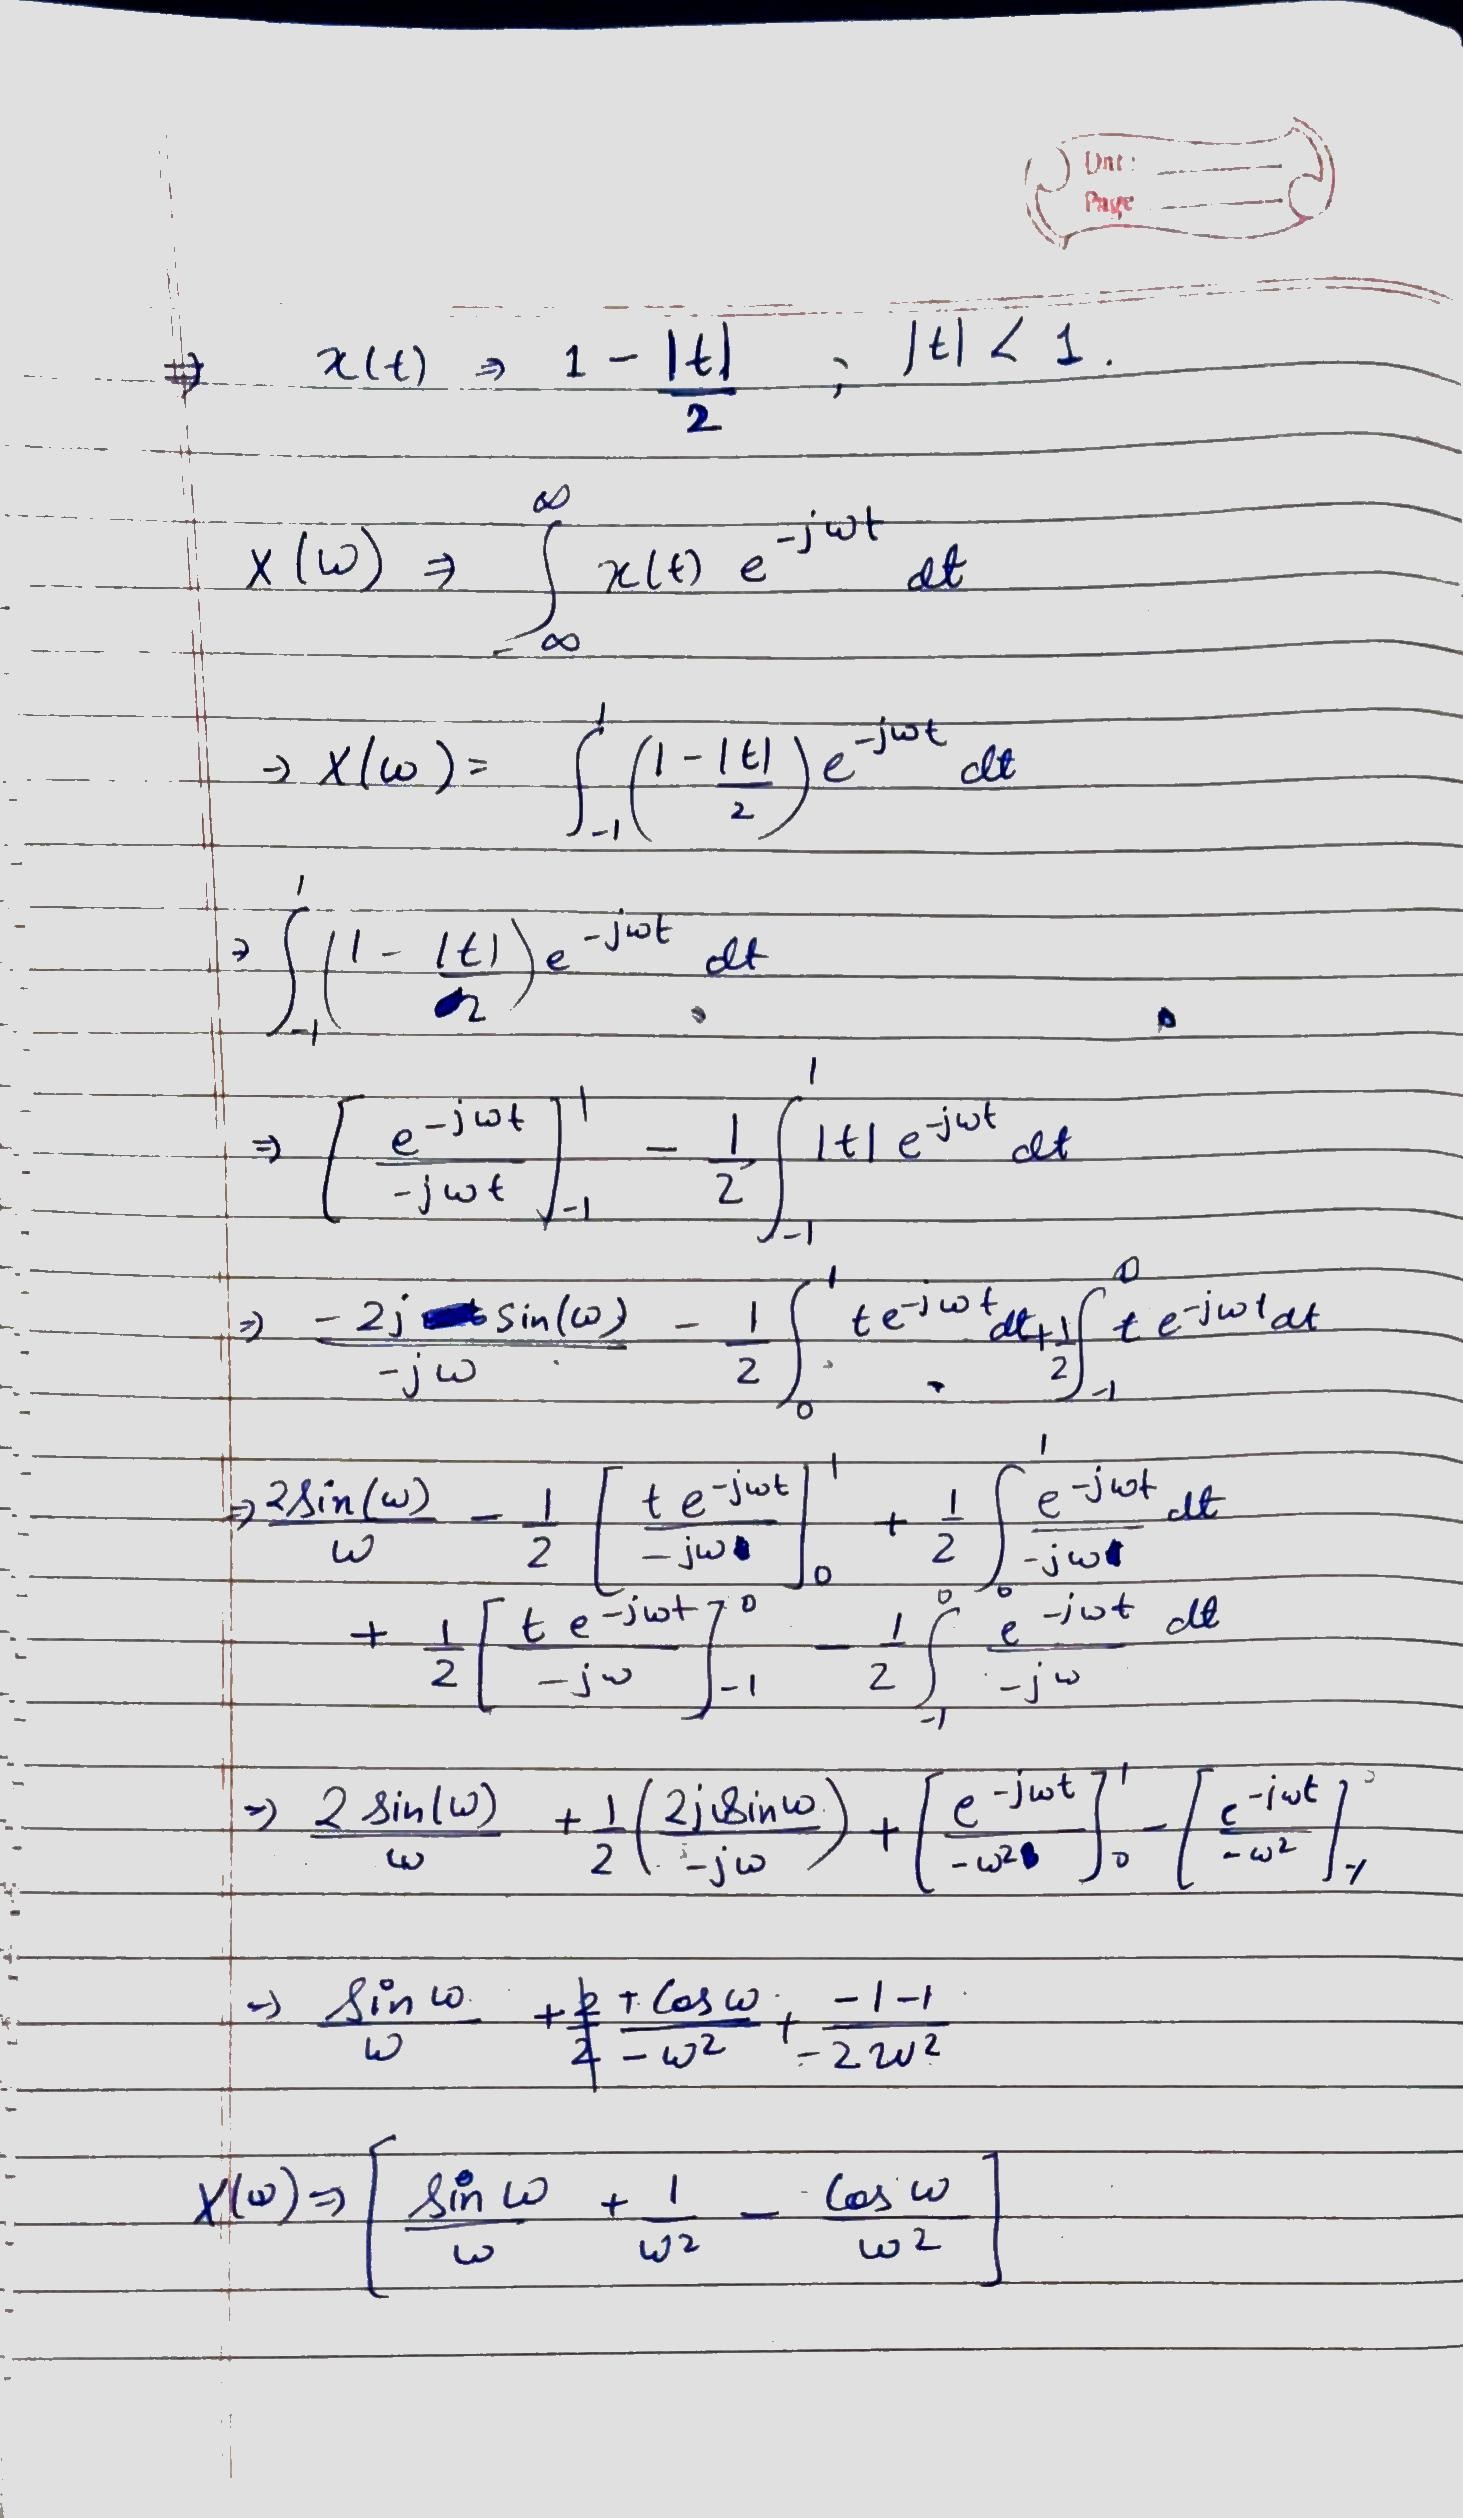 Date:
Page
⇒ x(t) ⇒ 1 - |t|/2 ; |t| < 1.
X(ω) ⇒ ∫_{-∞}^{∞} x(t) e^{-jωt} dt
→ X(ω) = ∫_{-1}^{1} (1 - |t|/2) e^{-jωt} dt
⇒ ∫_{-1}^{1} (1 - |t|/2) e^{-jωt} dt
⇒ [e^{-jωt}/-jωt]_{-1}^{1} - 1/2 ∫_{-1}^{1} |t| e^{-jωt} dt
⇒ -2j sin(ω)/-jω - 1/2 ∫_{0}^{1} t e^{-jωt} dt + 1/2 ∫_{-1}^{0} t e^{-jωt} dt
⇒ 2sin(ω)/ω - 1/2 [t e^{-jωt}/-jω]_{0}^{1} + 1/2 ∫_{0}^{1} e^{-jωt}/-jω dt
+ 1/2 [t e^{-jωt}/-jω]_{-1}^{0} - 1/2 ∫_{-1}^{0} e^{-jωt}/-jω dt
⇒ 2 sin(ω)/ω + 1/2 (2j sinω/-jω) + [e^{-jωt}/-ω²]_{0}^{1} - [e^{-jωt}/-ω²]_{-1}^{0}
→ sin ω/ω + + cos ω/-ω² + -1-1/-2ω²
X(ω) ⇒ [sin ω/ω + 1/ω² - cos ω/ω²]